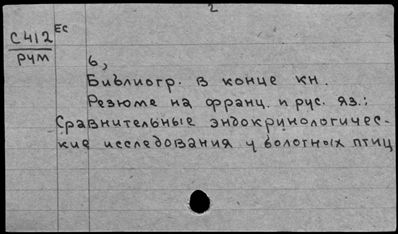 2
С412 ЕС
рум
6,
Библиогр. в конце кн.
Резюме на франц. и рус. яз.:
Сравнительные эндокринологичес-
кие исследования у болотных птиц